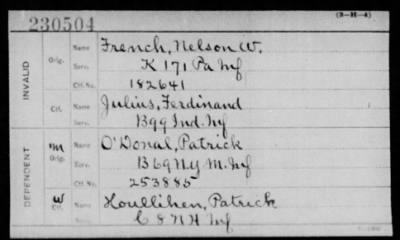 230504 (3-H-4)
INVALID
Orig. Name French, Nelson W.
Serv. K 171 Pa Inf
Ctf. No. 182641
Ctf. Name Julius, Ferdinand
B 99 Ind. Inf
DEPENDENT
m Orig. Name O'Donal, Patrick
Serv. B 69 N.Y. M. Inf
Ctf. No. 253885
w Ctf. Name Houllihen, Patrick
C 8 N H Inf